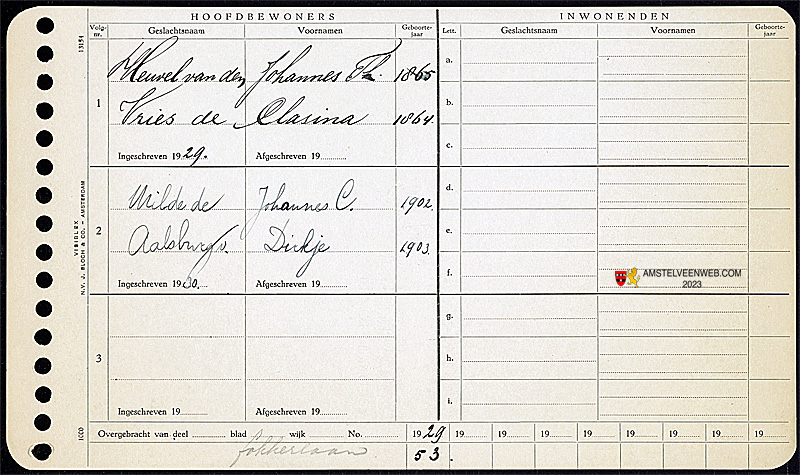 HOOFDBEWONERS INWONENDEN
Volg-nr. Geslachtsnaam Voornamen Geboorte-jaar Lett. Geslachtsnaam Voornamen Geboorte-jaar
13154
1 Heuvel van den Johannes Th. 1865 a.
Vries de Clasina 1864 b.
Ingeschreven 1929. Afgeschreven 19 c.
2 Wilde de Johannes C. 1902. d.
Aalsburg v. Dirkje 1903. e.
Ingeschreven 1930. Afgeschreven 19 f.
AMSTELVEENWEB.COM
2023
VISIDLEX
N.V. J. BLOCH & CO. – AMSTERDAM
3 g.
h.
Ingeschreven 19 Afgeschreven 19 i.
1000
Overgebracht van deel blad wijk No. 1929 19 19 19 19 19 19 19 19
Fokkerlaan 53.